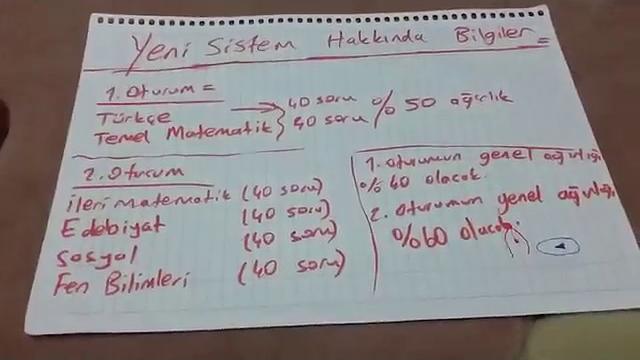 Yeni Sistem Hakkında Bilgiler =
1. Oturum =
Türkçe → 40 soru
Temel Matematik } 40 soru % 50 ağırlık
2. Oturum
ileri Matematik (40 soru)
Edebiyat (40 soru)
Sosyal (40 soru)
Fen Bilimleri (40 soru)
1. oturumun genel ağırlığı
%40 olacak.
2. oturumun genel ağırlığı
%60 olacak.